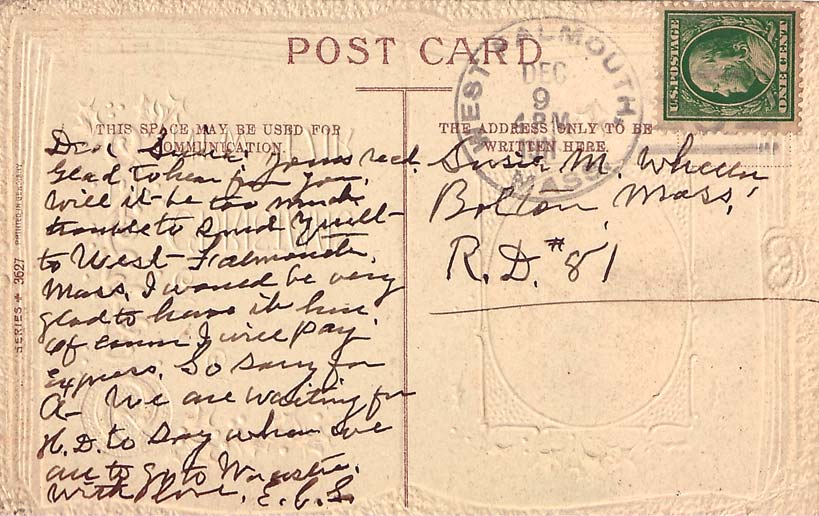 POST CARD
THIS SPACE MAY BE USED FOR
COMMUNICATION.
THE ADDRESS ONLY TO BE
WRITTEN HERE.
WEST FALMOUTH
DEC
9
4 PM
MASS.
U.S. POSTAGE
SERIES 3627 PRINTED IN GERMANY
Dear Susie: Yours rec'd.
Glad to hear from you.
Will it be too much
trouble to send quilt
to West Falmouth,
Mass. I would be very
glad to have it here
of course I will pay
express. So sorry for
A- We are waiting for
H.D. to say when we
are to go to Worcester.
With love, E.C.S.
Susie M. Wheeler
Bolton, Mass.
R.D. #81